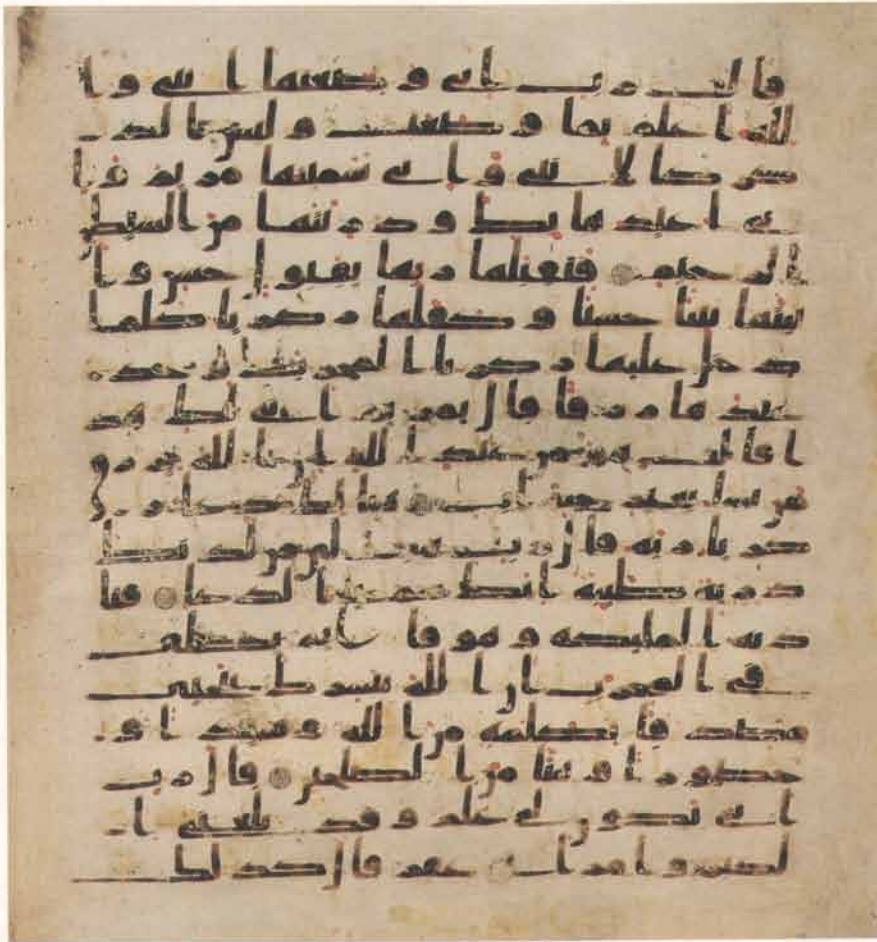 قالت رب اني وضعتها انثى وا
لله اعلم بما وضعت وليس الذ
كر كالانثى واني سميتها مريم وا
ني اعيذها بك وذريتها من الشيطن
الرجيم فتقبلها ربها بقبول حسن وا
نبتها نبتا حسنا وكفلها زكريا كلما
دخل عليها زكريا المحرب وجد
عندها رزقا قال يمريم انى لك هذ
ا قالت هو من عند الله ان الله يرز
ق من يشا بغير حساب هنالك دعا ز
كريا ربه قال رب هب لي من لدنك
ذرية طيبة انك سميع الدعا فنا
دته الملئكة وهو قايم يصلي
في المحرب ان الله يبشرك بيحيى
مصدقا بكلمة من الله وسيدا و
حصورا ونبيا من الصلحين قال رب
انى يكون لي غلم وقد بلغني ا
لكبر وامراتي عقر قال كذلك